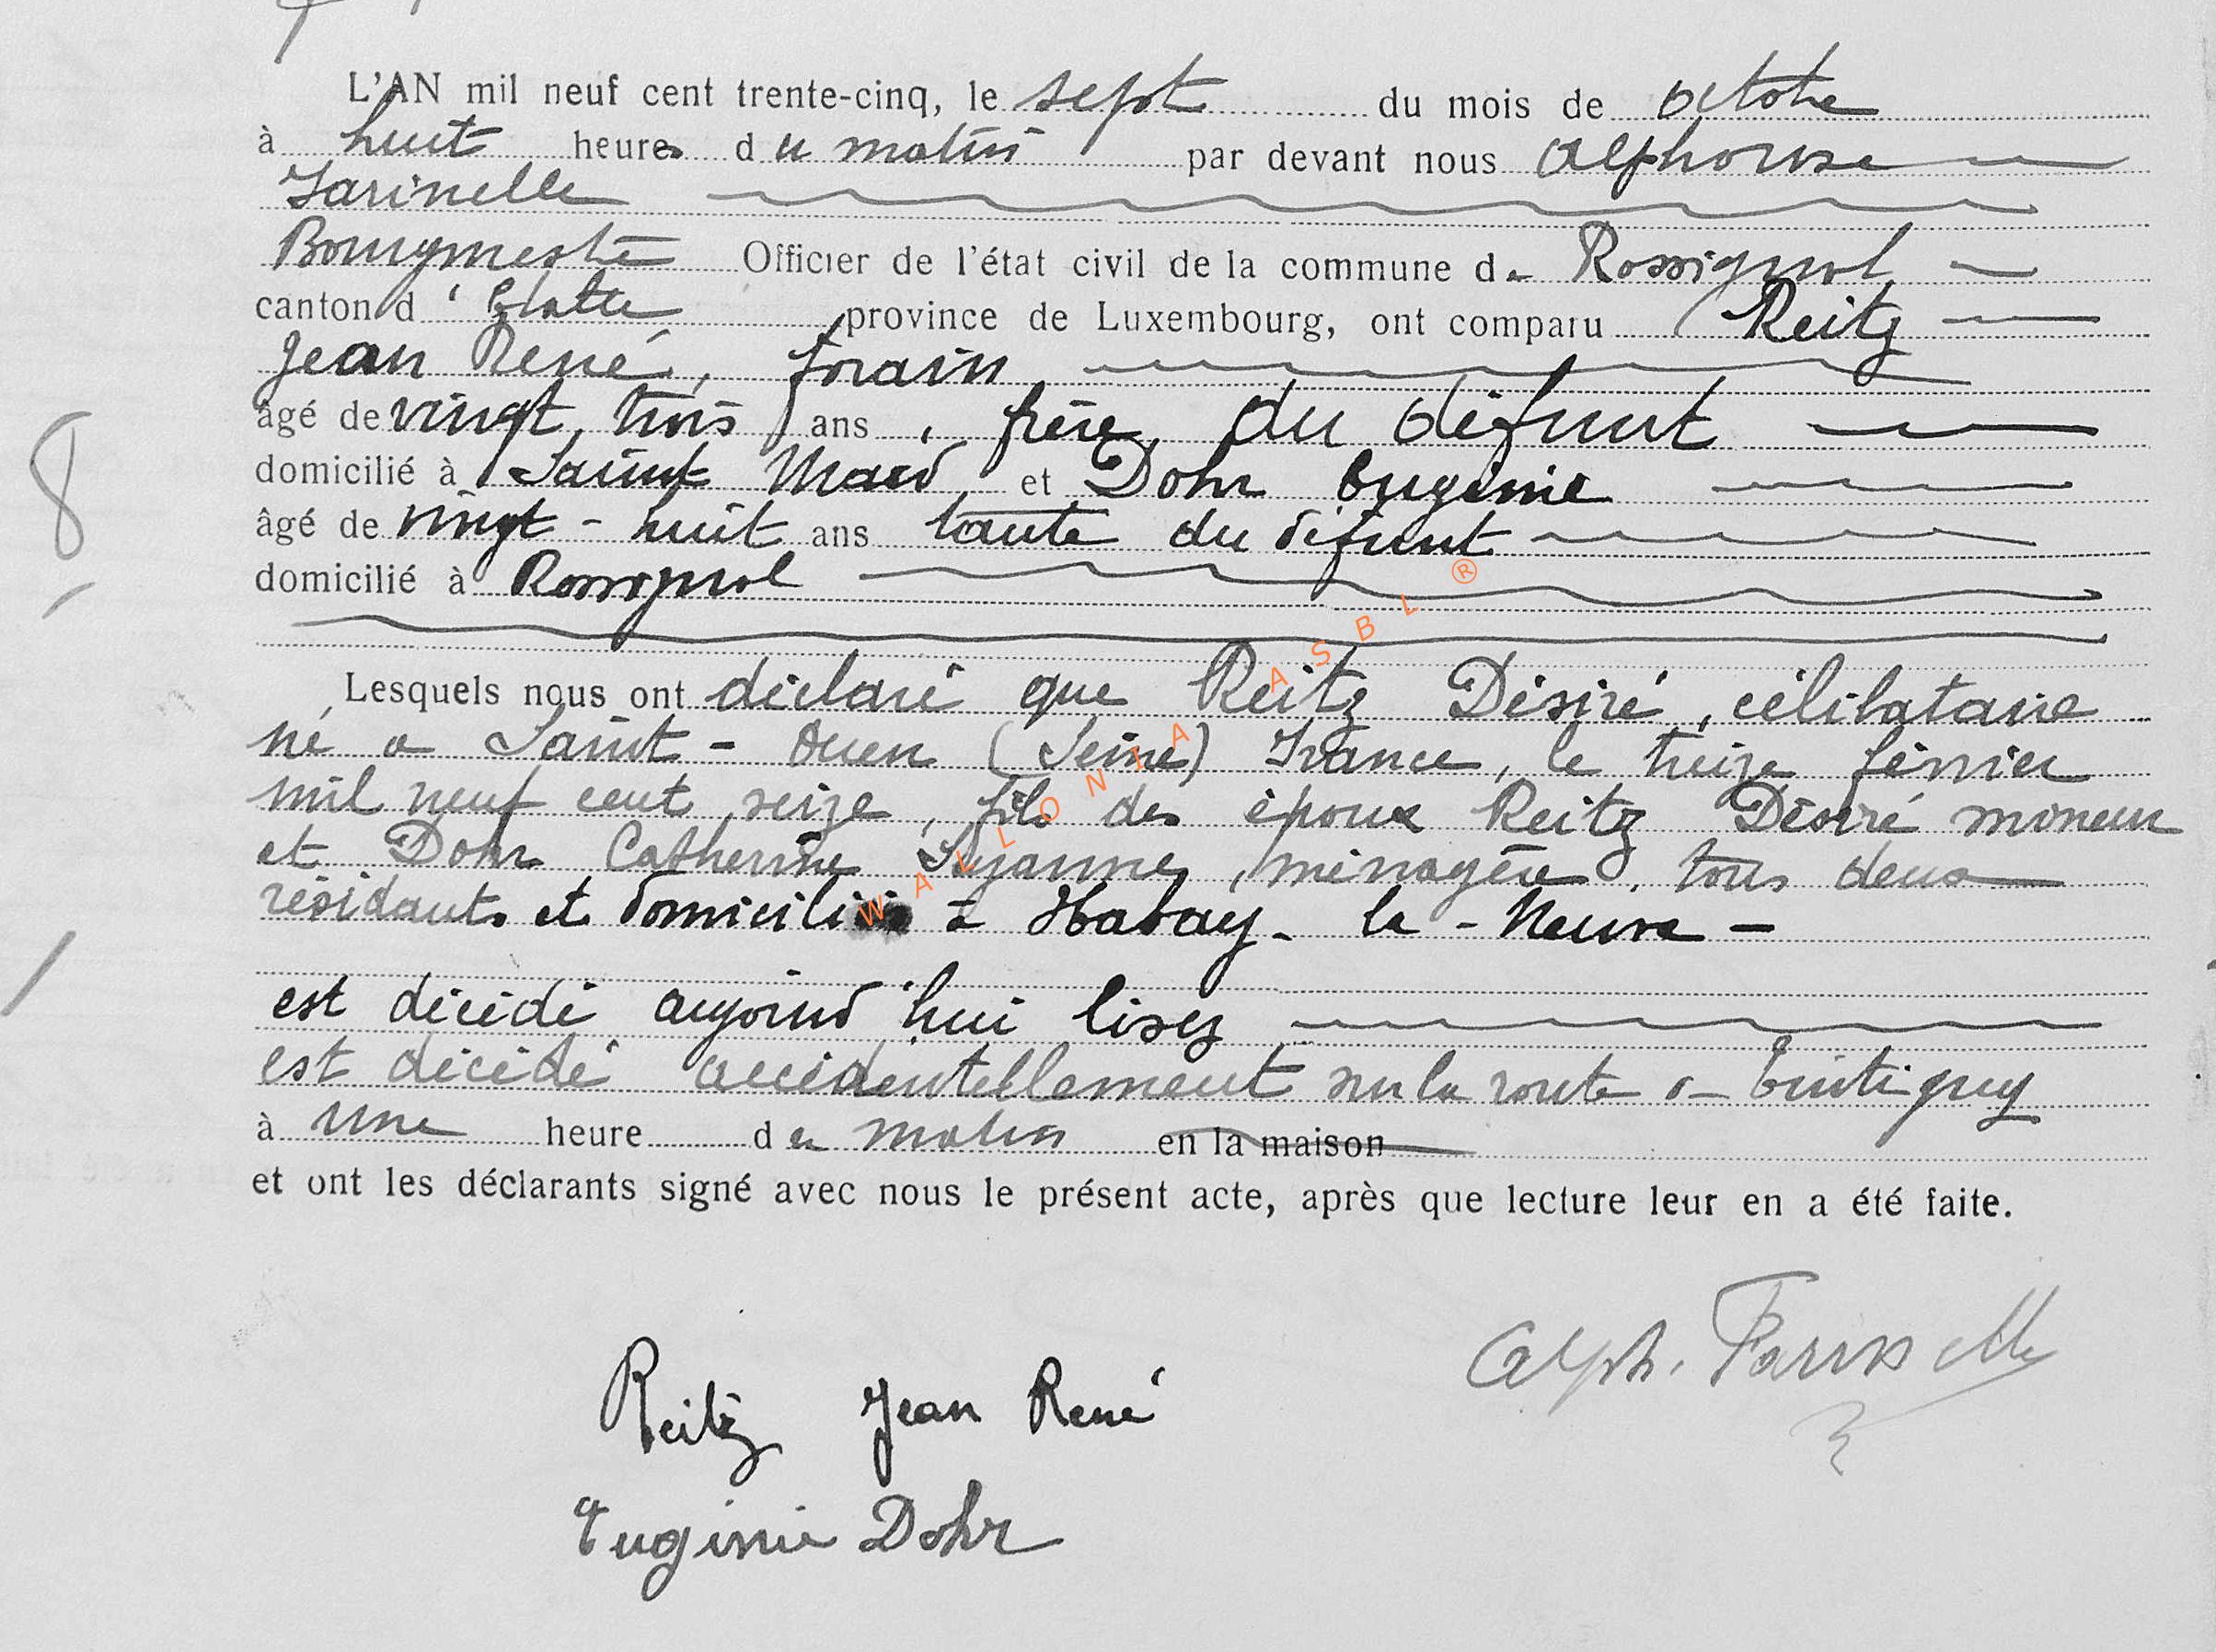 L'AN mil neuf cent trente-cinq, le sept du mois de octobre
à huit heures du matin par devant nous Alphonse
Farinelle
Bourgmestre Officier de l'état civil de la commune de Rossignol
canton d'Etalle province de Luxembourg, ont comparu Reitz
Jean René, forain
âgé de vingt trois ans, frère du défunt
domicilié à Saint Mard et Dohr Eugénie
âgé de vingt-huit ans tante du défunt
domicilié à Rossignol
Lesquels nous ont déclaré que Reitz Désiré, célibataire
né à Saint-Ouen (Seine) France, le treize février
mil neuf cent seize, fils des époux Reitz Désiré mineur
et Dohr Catherine Suzanne, ménagère, tous deux
résidants et domiciliés à Habay-la-Neuve-
est décédé aujourd'hui lisez
est décédé accidentellement sur la route à Tintigny
à une heure du matin en la maison
et ont les déclarants signé avec nous le présent acte, après que lecture leur en a été faite.
Alph. Farinelle
Reitz Jean René
Eugénie Dohr
8
WALLONIA ASBL ®